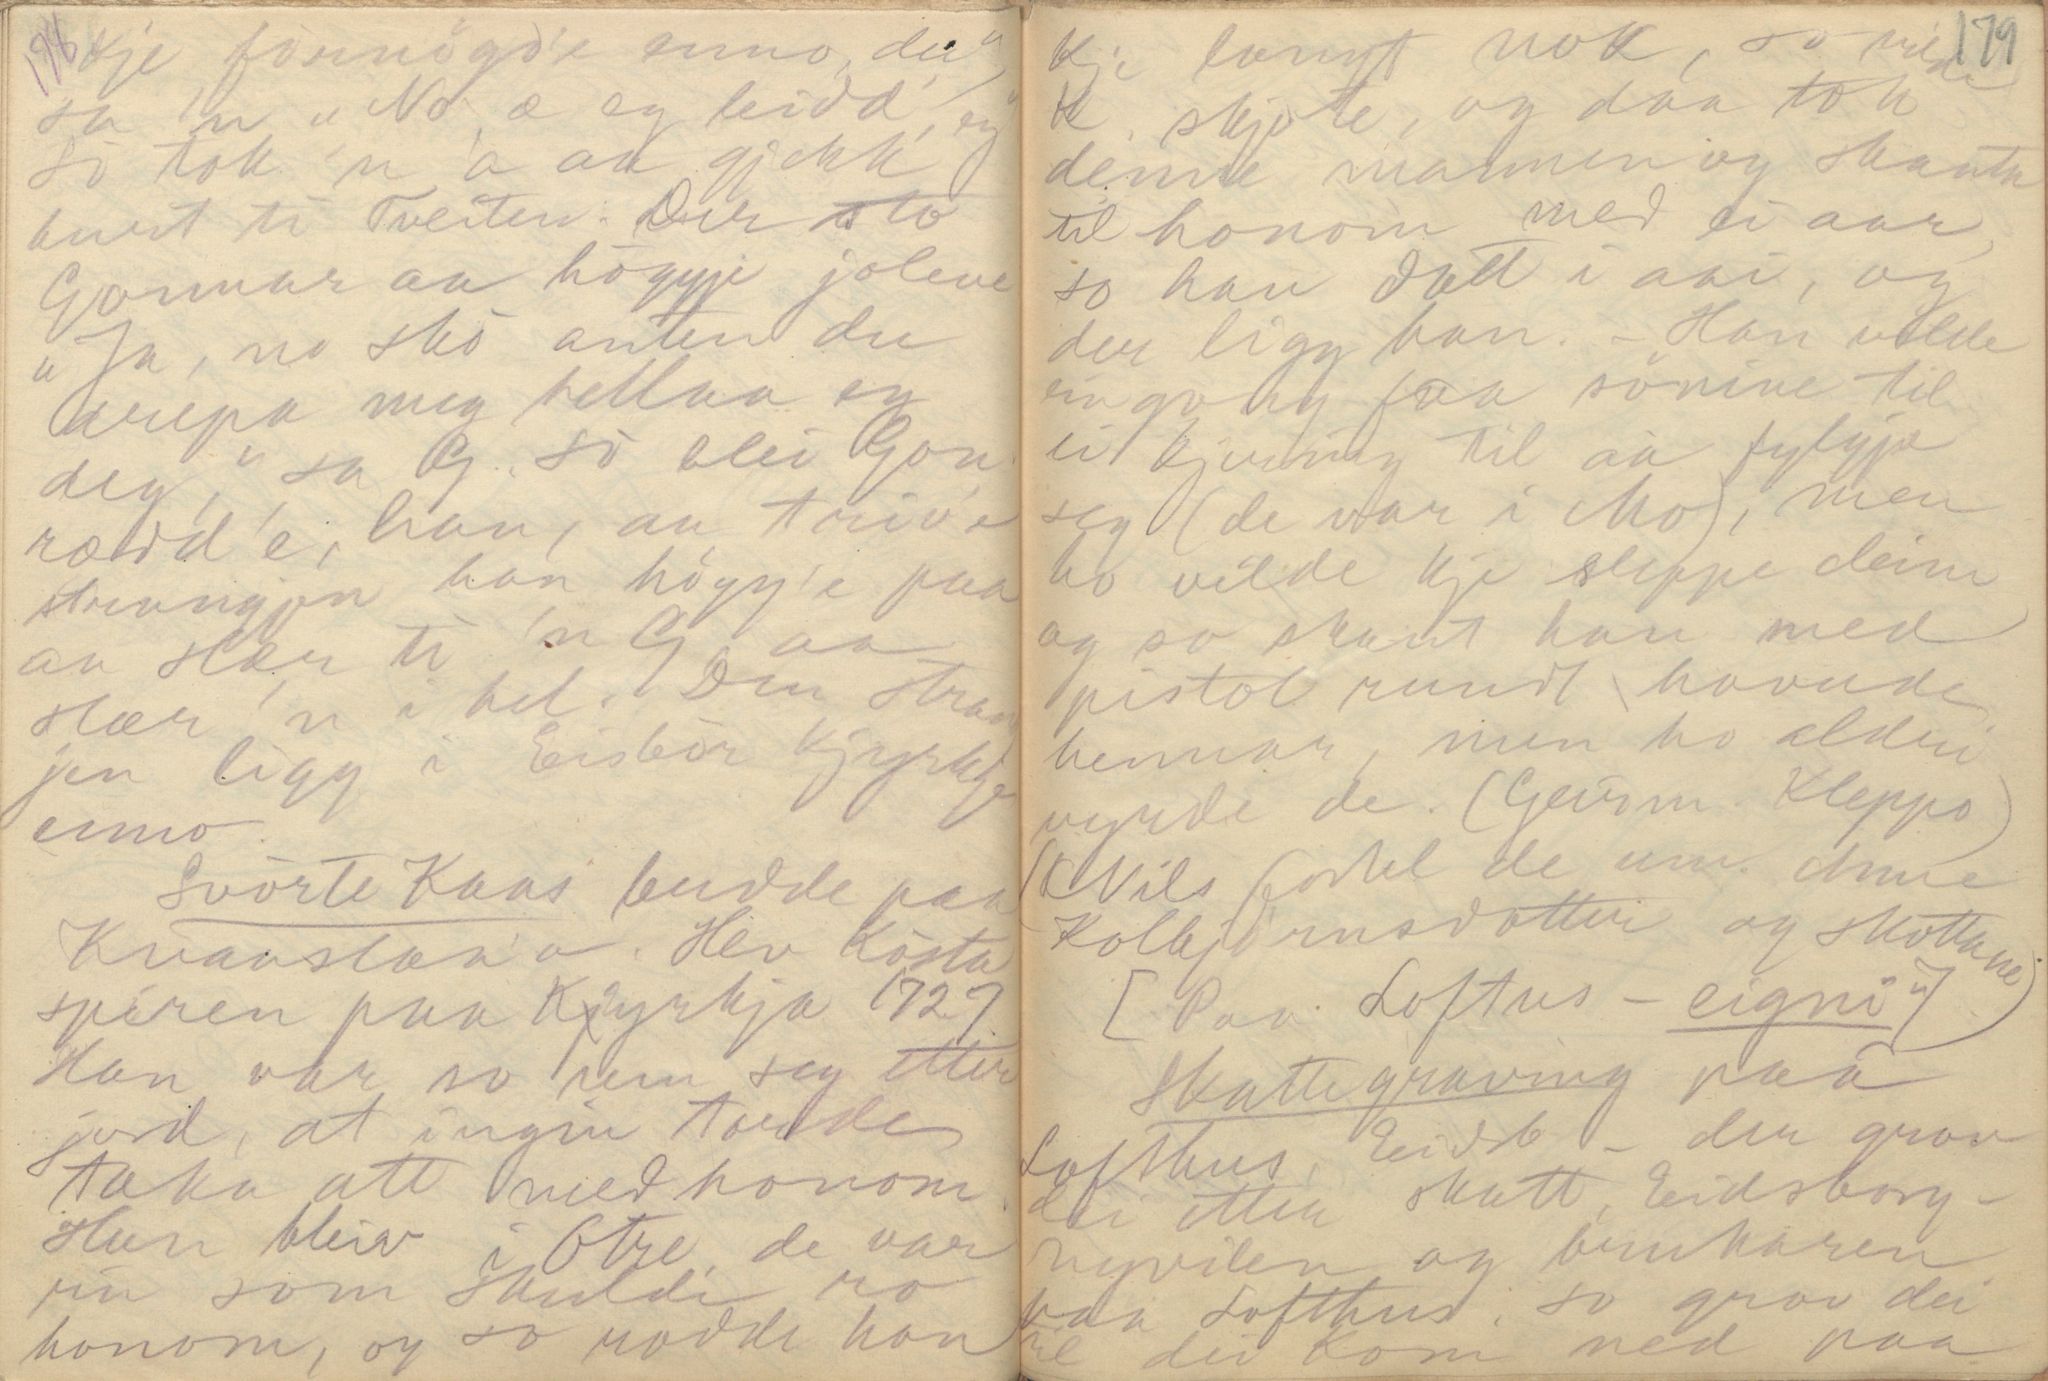 178
kje förnögd'e enno, du,"
sa 'n. "No æ eg leidd, eg"
Sò tok 'n 'a aa gjekk
burt ti Tveiten. Der sto
Gonnar aa högyje joleve
"Ja, no skò anten du
drepa meg hellaa eg
deg," sa G. Sò blei Gon.
rædd'e, han, aa treiv'e
strangjen han högg'e paa
aa slær ti 'n G. aa
slær 'n i hel. Den stran
jen ligg i Eisbòr kjyrkje
enno.
Svòrte Kaas budde paa
Kvaaslaa'o. Hev kòsta
spiren paa Kjyrkja 1727
Han var so um seg etter
jord, at ingin torde
taka att med honom.
Han bleiv i Otre, de var
ein som skulde ro
honom, og so rodde han
179
kje langt nok, so vilde
K. skjote, og daa tok
denne mannen og skanta
til honom med ei aar,
so han datt i aai, og
der ligg han. – Han vilde
eingong faa sönine til
ei kjering til aa fylgje
seg (de var i Mo), men
ho vilde kje sleppe deim
og so skaut han med
pistol rundt hovude
hennar, men ho aldri
vyrde de. (Geirm. Kleppo)
(Nils fortel de um Anne
Kolbjörnsdotter og skottane)
[Paa Loftus – eignì"]
Skattegraving paa
Lofthus, Eidsb – der grov
dei etter skatt, Eidsborg-
nyvilen og brukaren
paa Lofthus. so grov dei
til dei kom ned paa